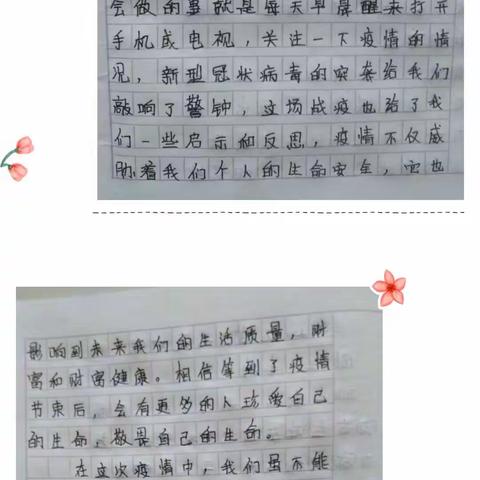 会做的事就是每天早晨醒来打开
手机或电视，关注一下疫情的情
况，新型冠状病毒的突袭给我们
敲响了警钟，这场战疫也给了我
们一些启示和反思，疫情不仅威
胁着我们个人的生命安全，它也
影响到未来我们的生活质量，财
富和财富健康。相信等到了疫情
节束后，会有更多的人珍爱自己
的生命，敬畏自己的生命。
在这次疫情中，我们虽不能